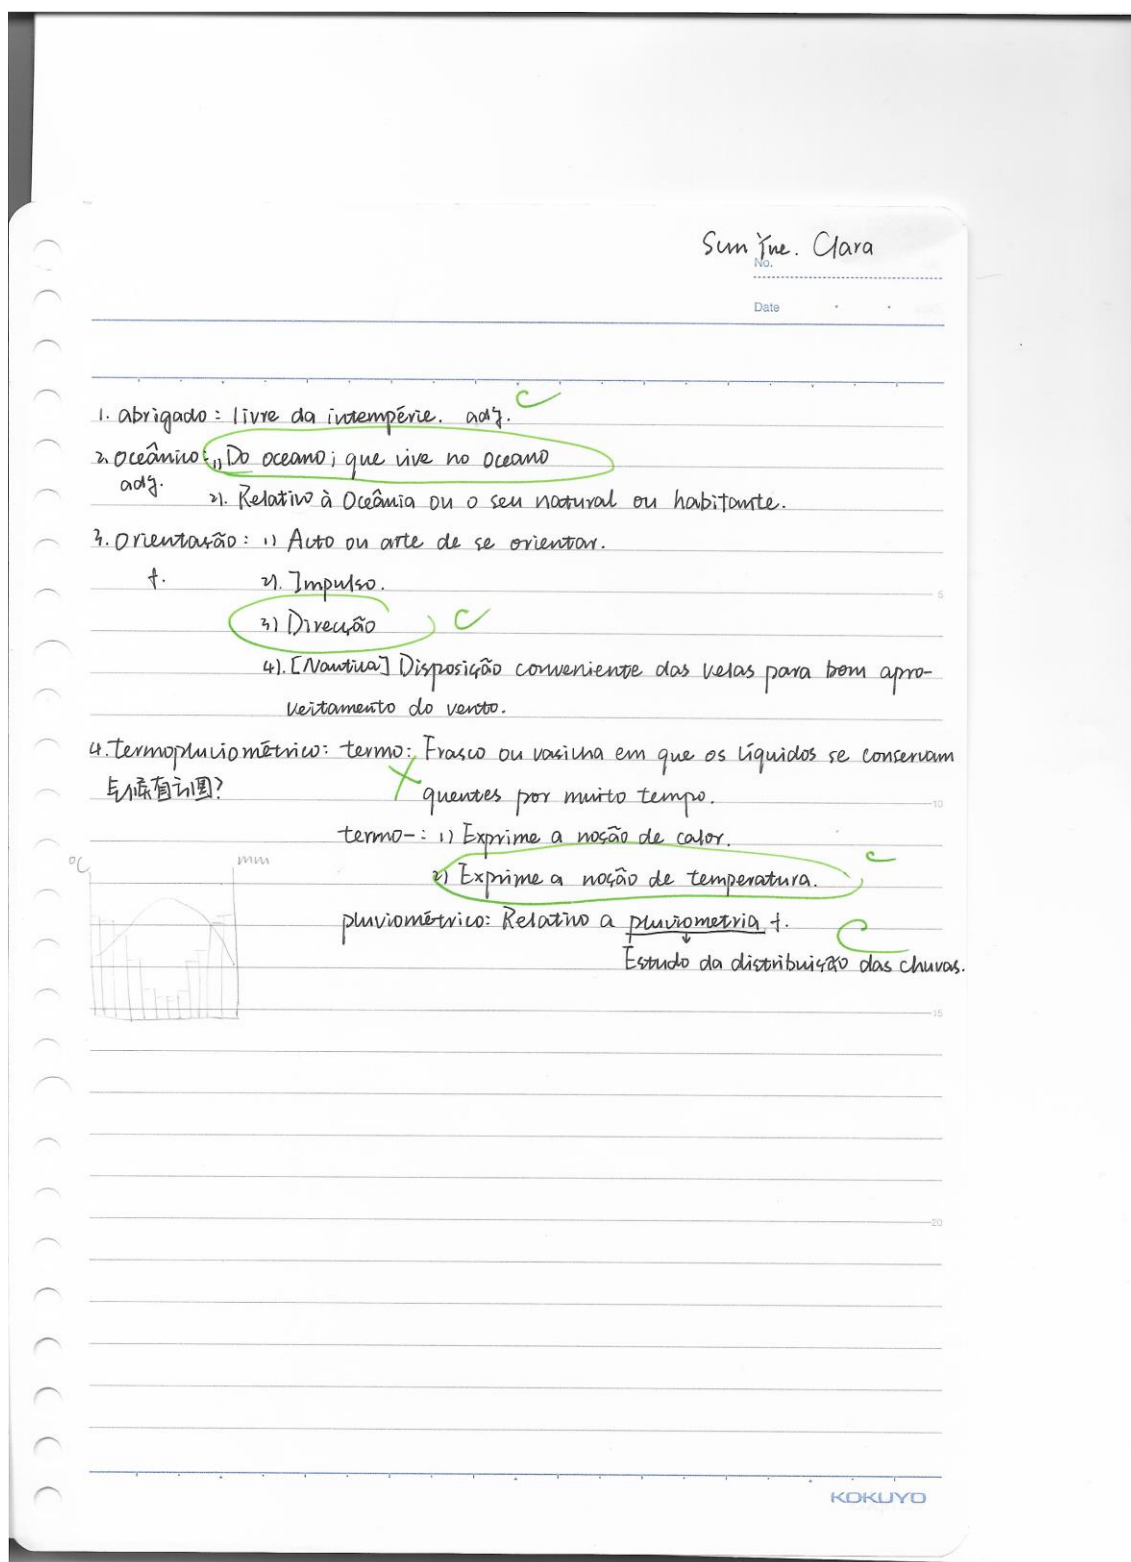 Sun Yue. Clara
No.
Date
1. abrigado: livre da intempérie. adj. C
2. Oceânico: 1) Do oceano; que vive no oceano
adj.
2). Relativo à Oceânia ou o seu natural ou habitante.
3. Orientação: 1) Acto ou arte de se orientar.
f. 2). Impulso.
3) Direcção C
4). [Nautica] Disposição conveniente das velas para bom apro-
veitamento do vento.
5
4. termopluviométrico: termo: Frasco ou vasilha em que os líquidos se conservam
quentes por muito tempo.
10
termo-: 1) Exprime a noção de calor.
°C mm
2) Exprime a noção de temperatura. C
pluviométrico: Relativo a pluviometria f. C
Estudo da distribuição das chuvas.
15
20
KOKUYO